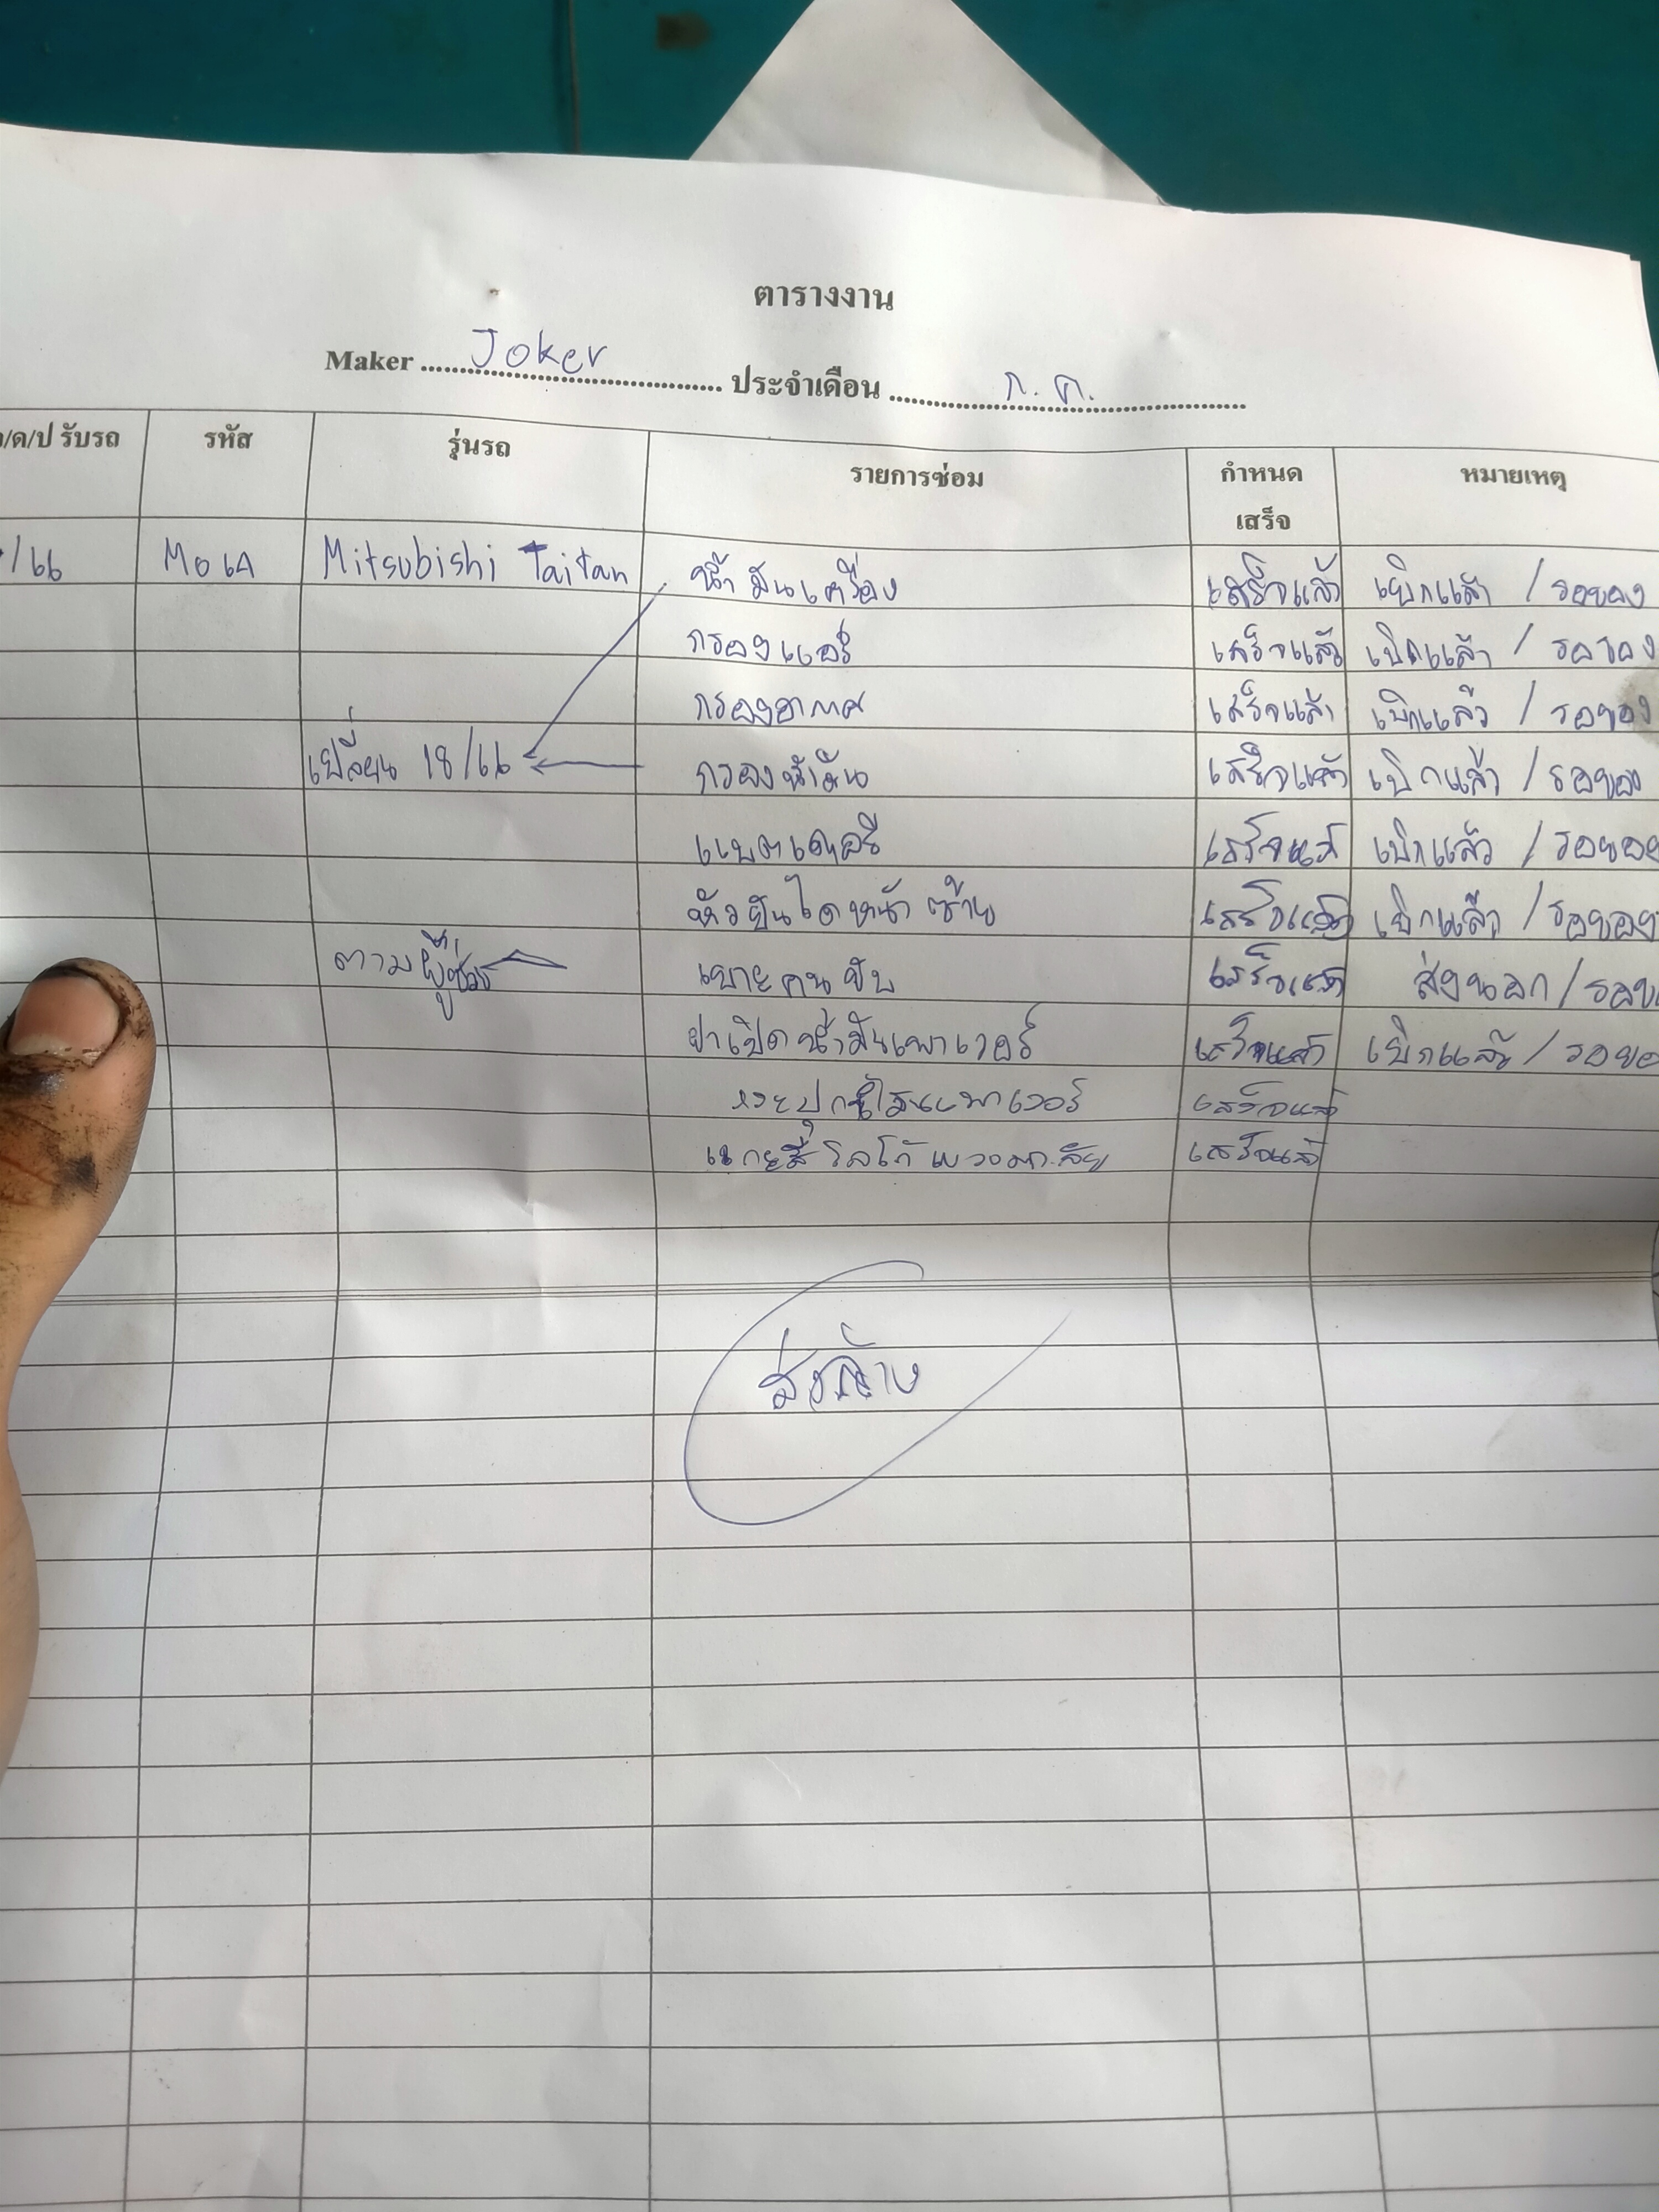 ตารางงาน
Maker Joker ประจำเดือน ก.ค.
/ด/ป รับรถ รหัส รุ่นรถ รายการซ่อม กำหนดเสร็จ หมายเหตุ
/66 Mitsubishi Taitan น้ำมันเครื่อง เสร็จแล้ว เบิกแล้ว / รอของ
กรองแอร์ เสร็จแล้ว เบิกแล้ว / รอของ
กรองอากาศ เสร็จแล้ว เบิกแล้ว / รอของ
เปลี่ยน 18/66 กรองน้ำมัน เสร็จแล้ว เบิกแล้ว / รอของ
แบตเตอรี่ เสร็จแล้ว เบิกแล้ว / รอของ
หน้า ซ้าย เสร็จแล้ว เบิกแล้ว / รอของ
ตาม เบาะคนขับ เสร็จแล้ว ส่งนอก / รอ
ฝาเปิดน้ำมันเพาเวอร์ เสร็จแล้ว เบิกแล้ว / รอของ
กระปุกน้ำมันเพาเวอร์ เสร็จแล้ว
แกะสี โลโก้ พวงมาลัย เสร็จแล้ว
ส่งล้าง